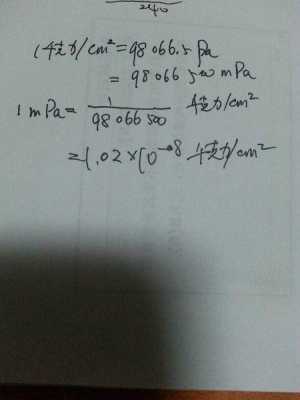 2410
1千克力/cm²=98066.5pa
= 98066500mPa
1mPa= 1/98066500 千克力/cm²
=1.02×10⁻⁸千克力/cm²